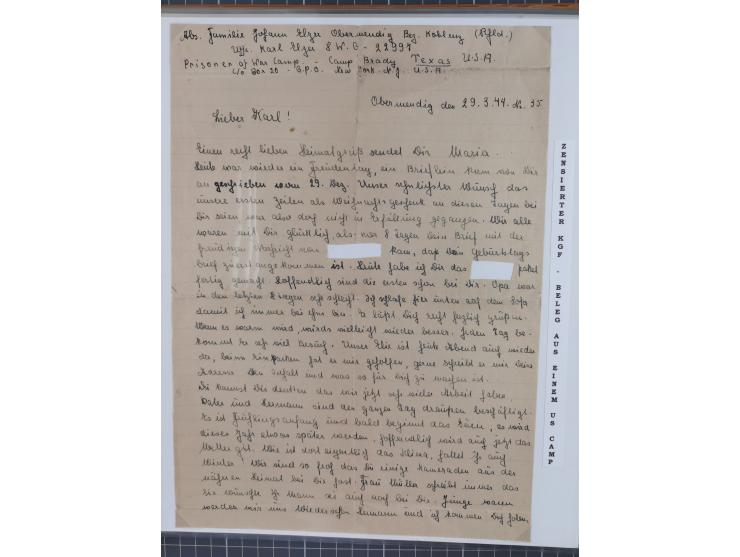 Abs. Familie Johann Elzer Obermendig Bez. Koblenz (Rhld.)
Uffz. Karl Elzer 8 W. G - 22997
Prisoner of War Camp. - Camp Brady Texas U.S.A.
c/o Box 20 - G.P.O. New York. N.Y. U.S.A.
Obermendig den 29.3.44. Nr. 35
Lieber Karl!
Einen recht lieben Heimatgruß sendet Dir Maria.
Heute war wieder ein Freudentag, ein Brieflein kam von Dir
an geschrieben vom 29. Dez. Unser sehnlichster Wunsch das
unsere ersten Zeilen als Weihnachtsgeschenk an diesen Tagen bei
Dir seien war also doch nicht in Erfüllung gegangen. Wir alle
waren mit Dir glücklich, als vor 8 Tagen dein Brief mit der
freudigen Nachricht von kam, daß dein Geburtstags
brief zuerst angekommen ist. Heute habe ich Dir das paket
fertig gemacht. Hoffendlich sind die ersten schon bei Dir. Opa war
in den letzten Tagen sehr schlecht. Ich schlafe hier unten auf dem Sofa
damit ich immer bei ihm bin. Er läßt Dich recht herzlich grüßen.
Wenn es warm wird wirds vielleicht wieder besser. Jeden Tag be-
kommt er sehr viel Besuch. Unser Elie ist heute Abend auch wieder
da, beim Einpacken hat es mir geholfen, gerne schreibt es mir deine
Adresse den Inhalt und was so für Dich zu machen ist.
Du kannst Dir denken das wir jetzt sehr wieder Arbeit haben.
Vater und Hermann sind den ganzen Tag draußen beschäftigt.
Es ist Frühlingsanfang und bald beginnt das Säen, es wird
dieses Jahr etwas später werden. Hoffendlich wird auch jetzt das
Wetter gut. Wie ist dort eigentlich das Klima, hattet Ihr auch
Winter? Wir sind so froh das du einige Kameraden aus der
näheren Heimat bei dir hast. Frau Müller schreibt immer das
sie wünschte ihr Mann sei auch noch bei dir. Junge wann
werden wir uns wiedersehen Hermann und ich kommen Dich holen,
ZENSIERTER KGF - BELEG AUS EINEM US CAMP